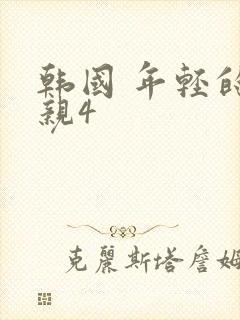 韩國 年輕的
親4
克麗斯塔詹姆